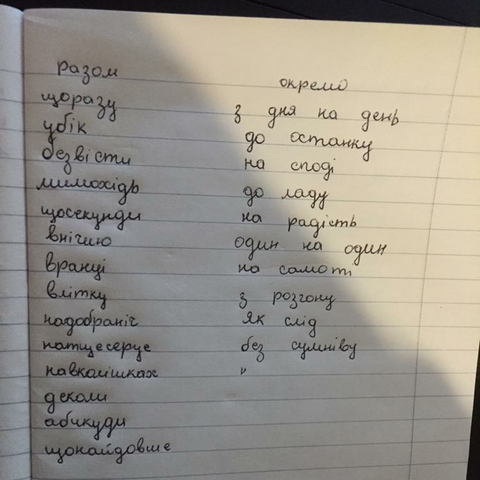 разом
щоразу
убік
безвісти
мимохідь
щосекунди
внічию
вранці
влітку
надобраніч
натщесерце
навкарішках
деколи
абикуди
щонайдовше
окремо
з дня на день
до останку
на споді
до ладу
на радість
один на один
на самоті
з розгону
як слід
без сумніву
"